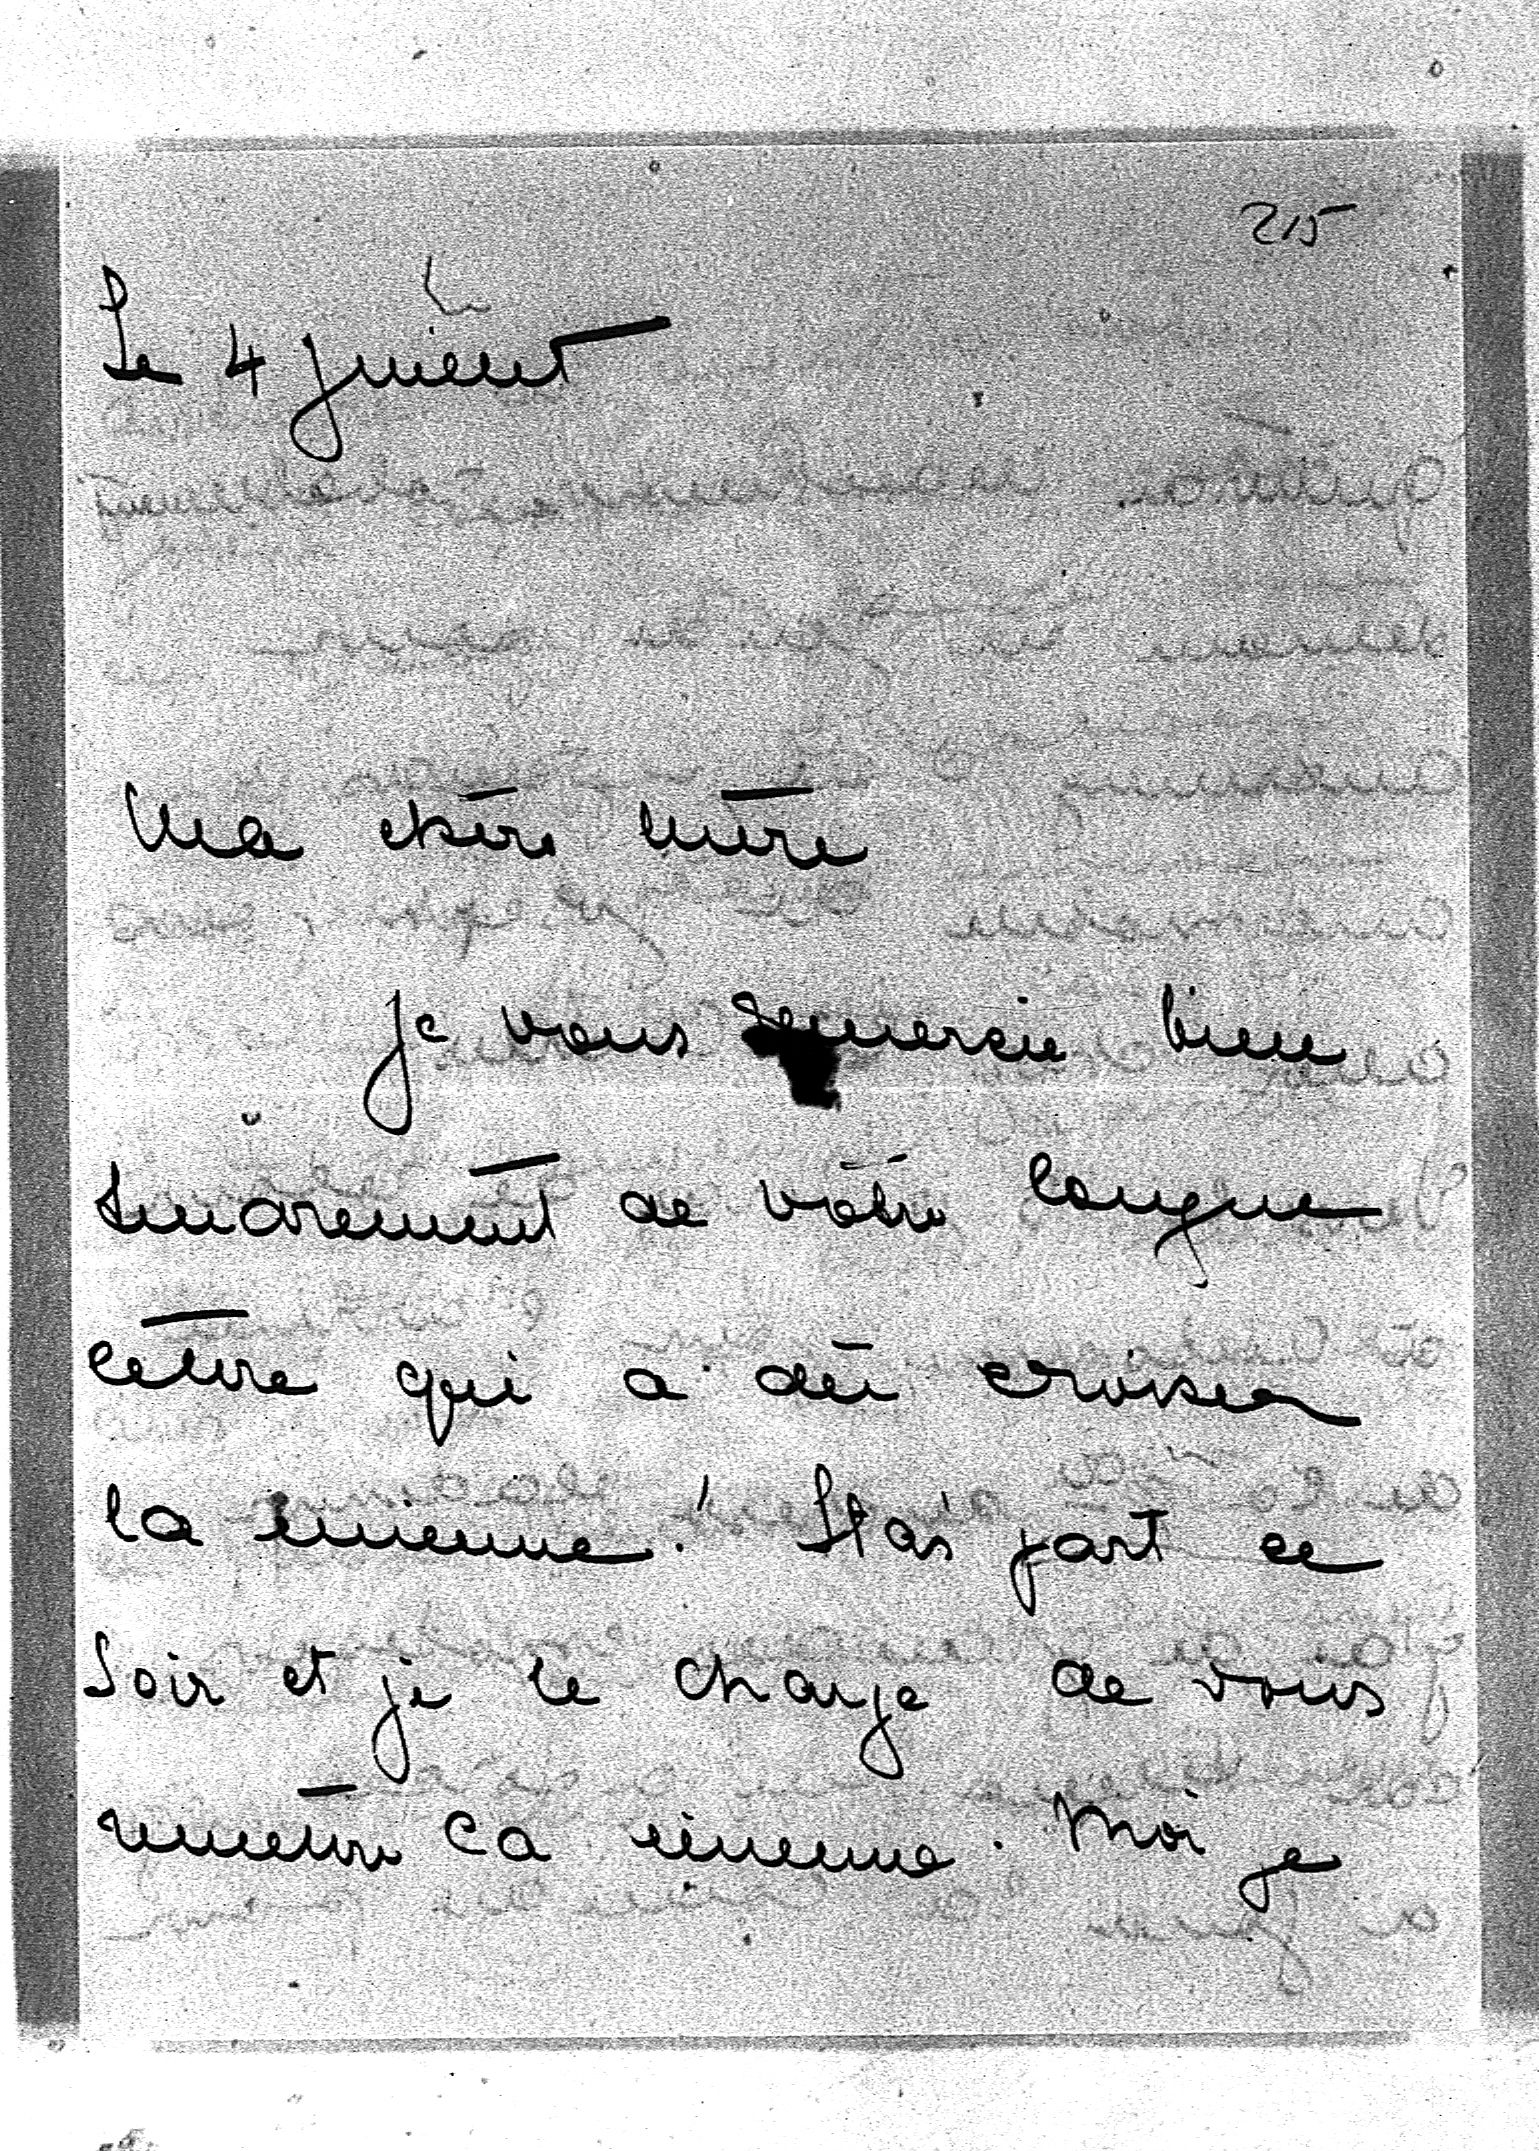 215
Le 4 juillet
Ma chère mère
Je vous remercie bien
tendrement de votre longue
lettre qui a dû croiser
la mienne ! Stas part ce
soir et je le charge de vous
remettre la mienne. Moi je